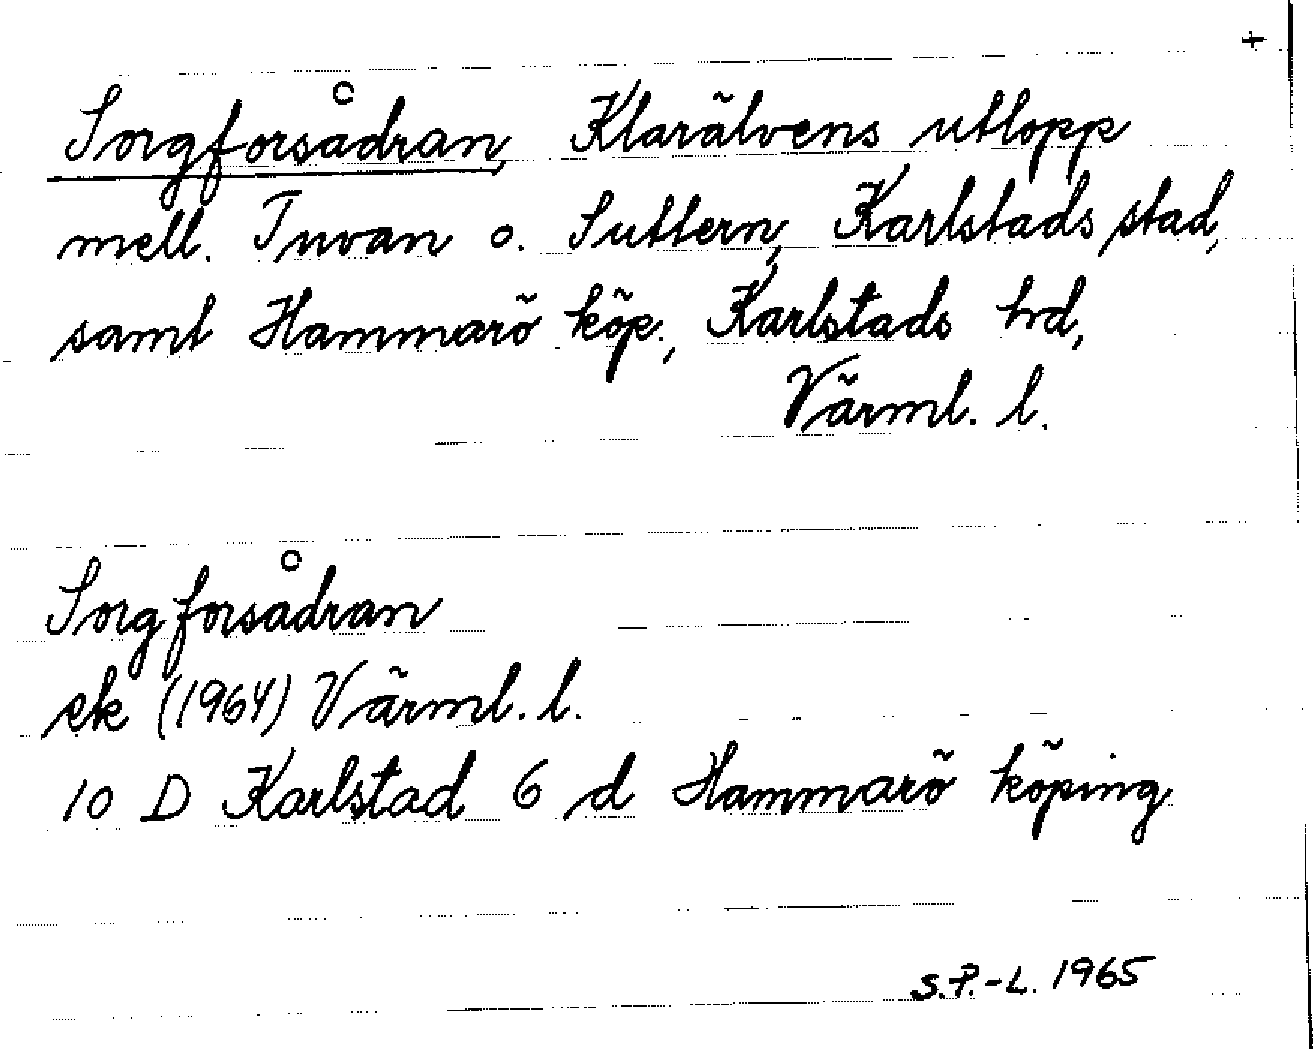 +
Sorgforsådran, Klarälvens utlopp
mell. Tuvan o. Suttern, Karlstads stad,
samt Hammarö köp., Karlstads hd,
Värml. l.
Sorgforsådran
ek (1964) Värml. l.
10 D Karlstad 6 d Hammarö köping
S.P.-L. 1965